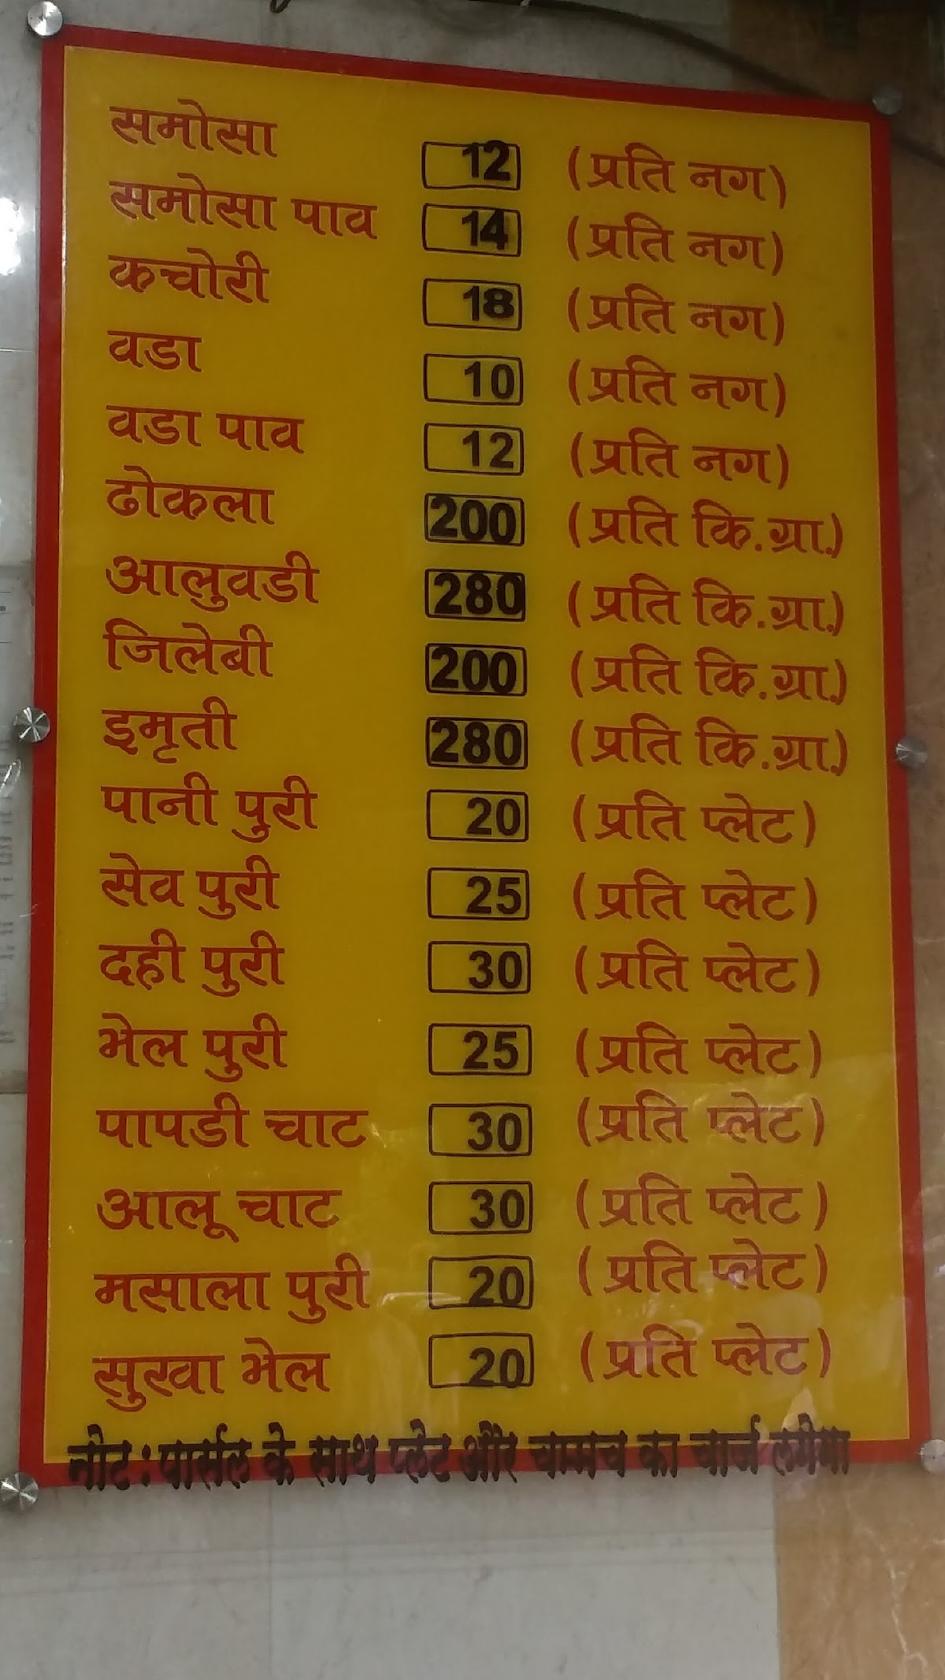 समोसा 12 (प्रति नग)
समोसा पाव 14 (प्रति नग)
कचोरी 18 (प्रति नग)
वडा 10 (प्रति नग)
वडा पाव 12 (प्रति नग)
ढोकला 200 (प्रति कि.ग्रा.)
आलुवडी 280 (प्रति कि.ग्रा.)
जिलेबी 200 (प्रति कि.ग्रा.)
इमृती 280 (प्रति कि.ग्रा.)
पानी पुरी 20 (प्रति प्लेट)
सेव पुरी 25 (प्रति प्लेट)
दही पुरी 30 (प्रति प्लेट)
भेल पुरी 25 (प्रति प्लेट)
पापडी चाट 30 (प्रति प्लेट)
आलू चाट 30 (प्रति प्लेट)
मसाला पुरी 20 (प्रति प्लेट)
सुखा भेल 20 (प्रति प्लेट)
नोट : पार्सल के साथ प्लेट और चामच का चार्ज लगेगा